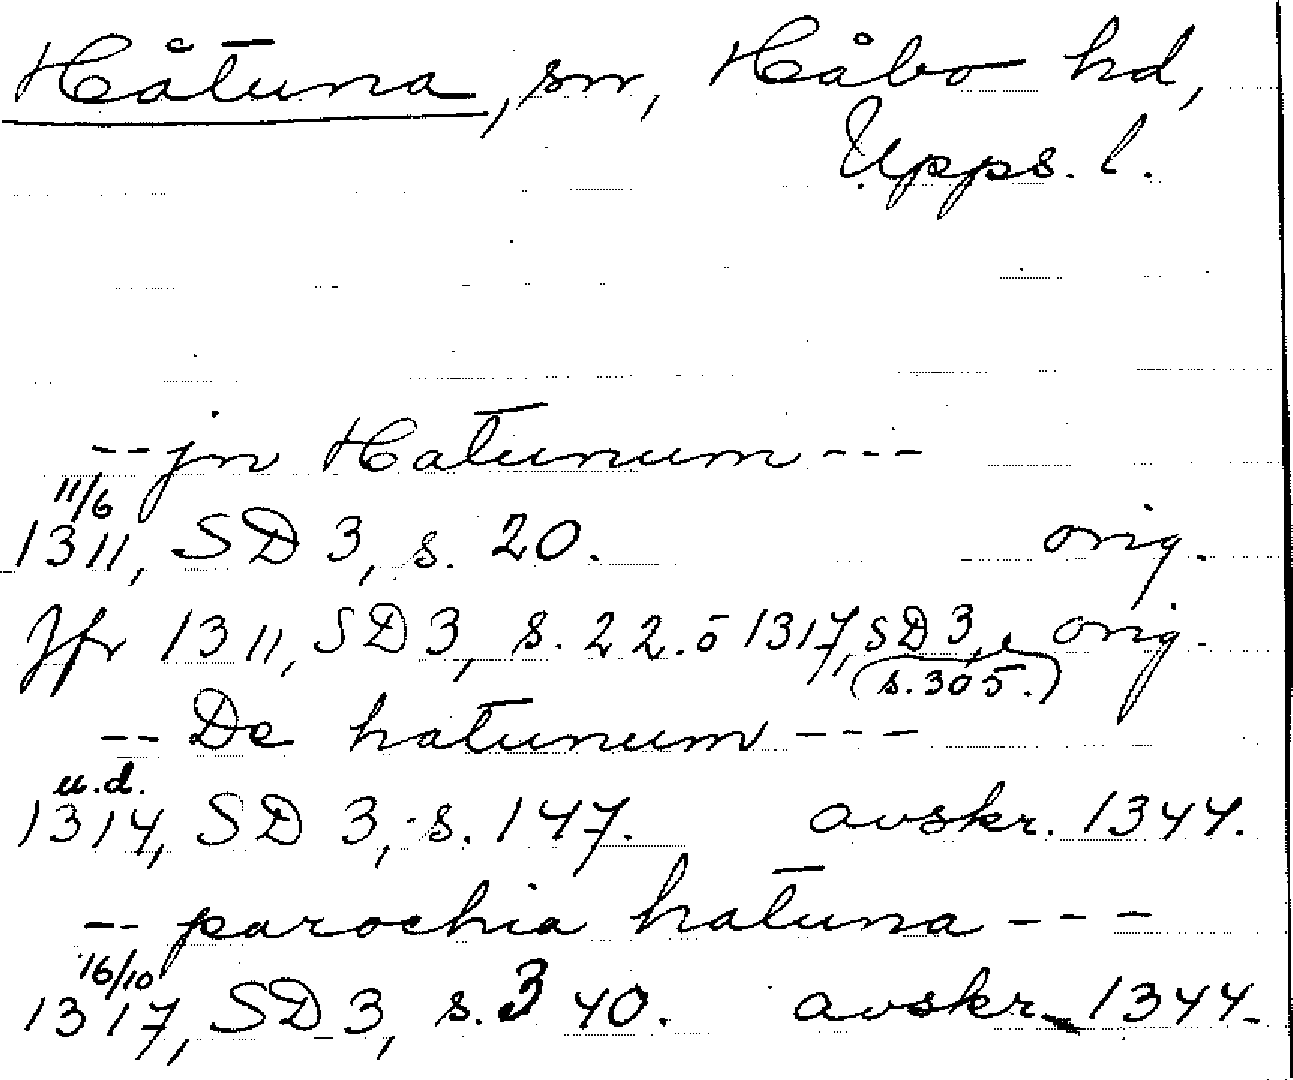 Håtuna, sn, Håbo hd,
Upps. l.
-- jn Hatunum ---
11/6
1311, SD 3, s. 20. orig.
Jfr 1311, SD 3, s. 22. o 1317, SD 3, orig.
(s. 305.)
-- De hatunum ---
u.d.
1314, SD 3, s. 147. avskr. 1344.
-- parochia hatuna ---
16/10
1317, SD 3, s. 340. avskr. 1344.